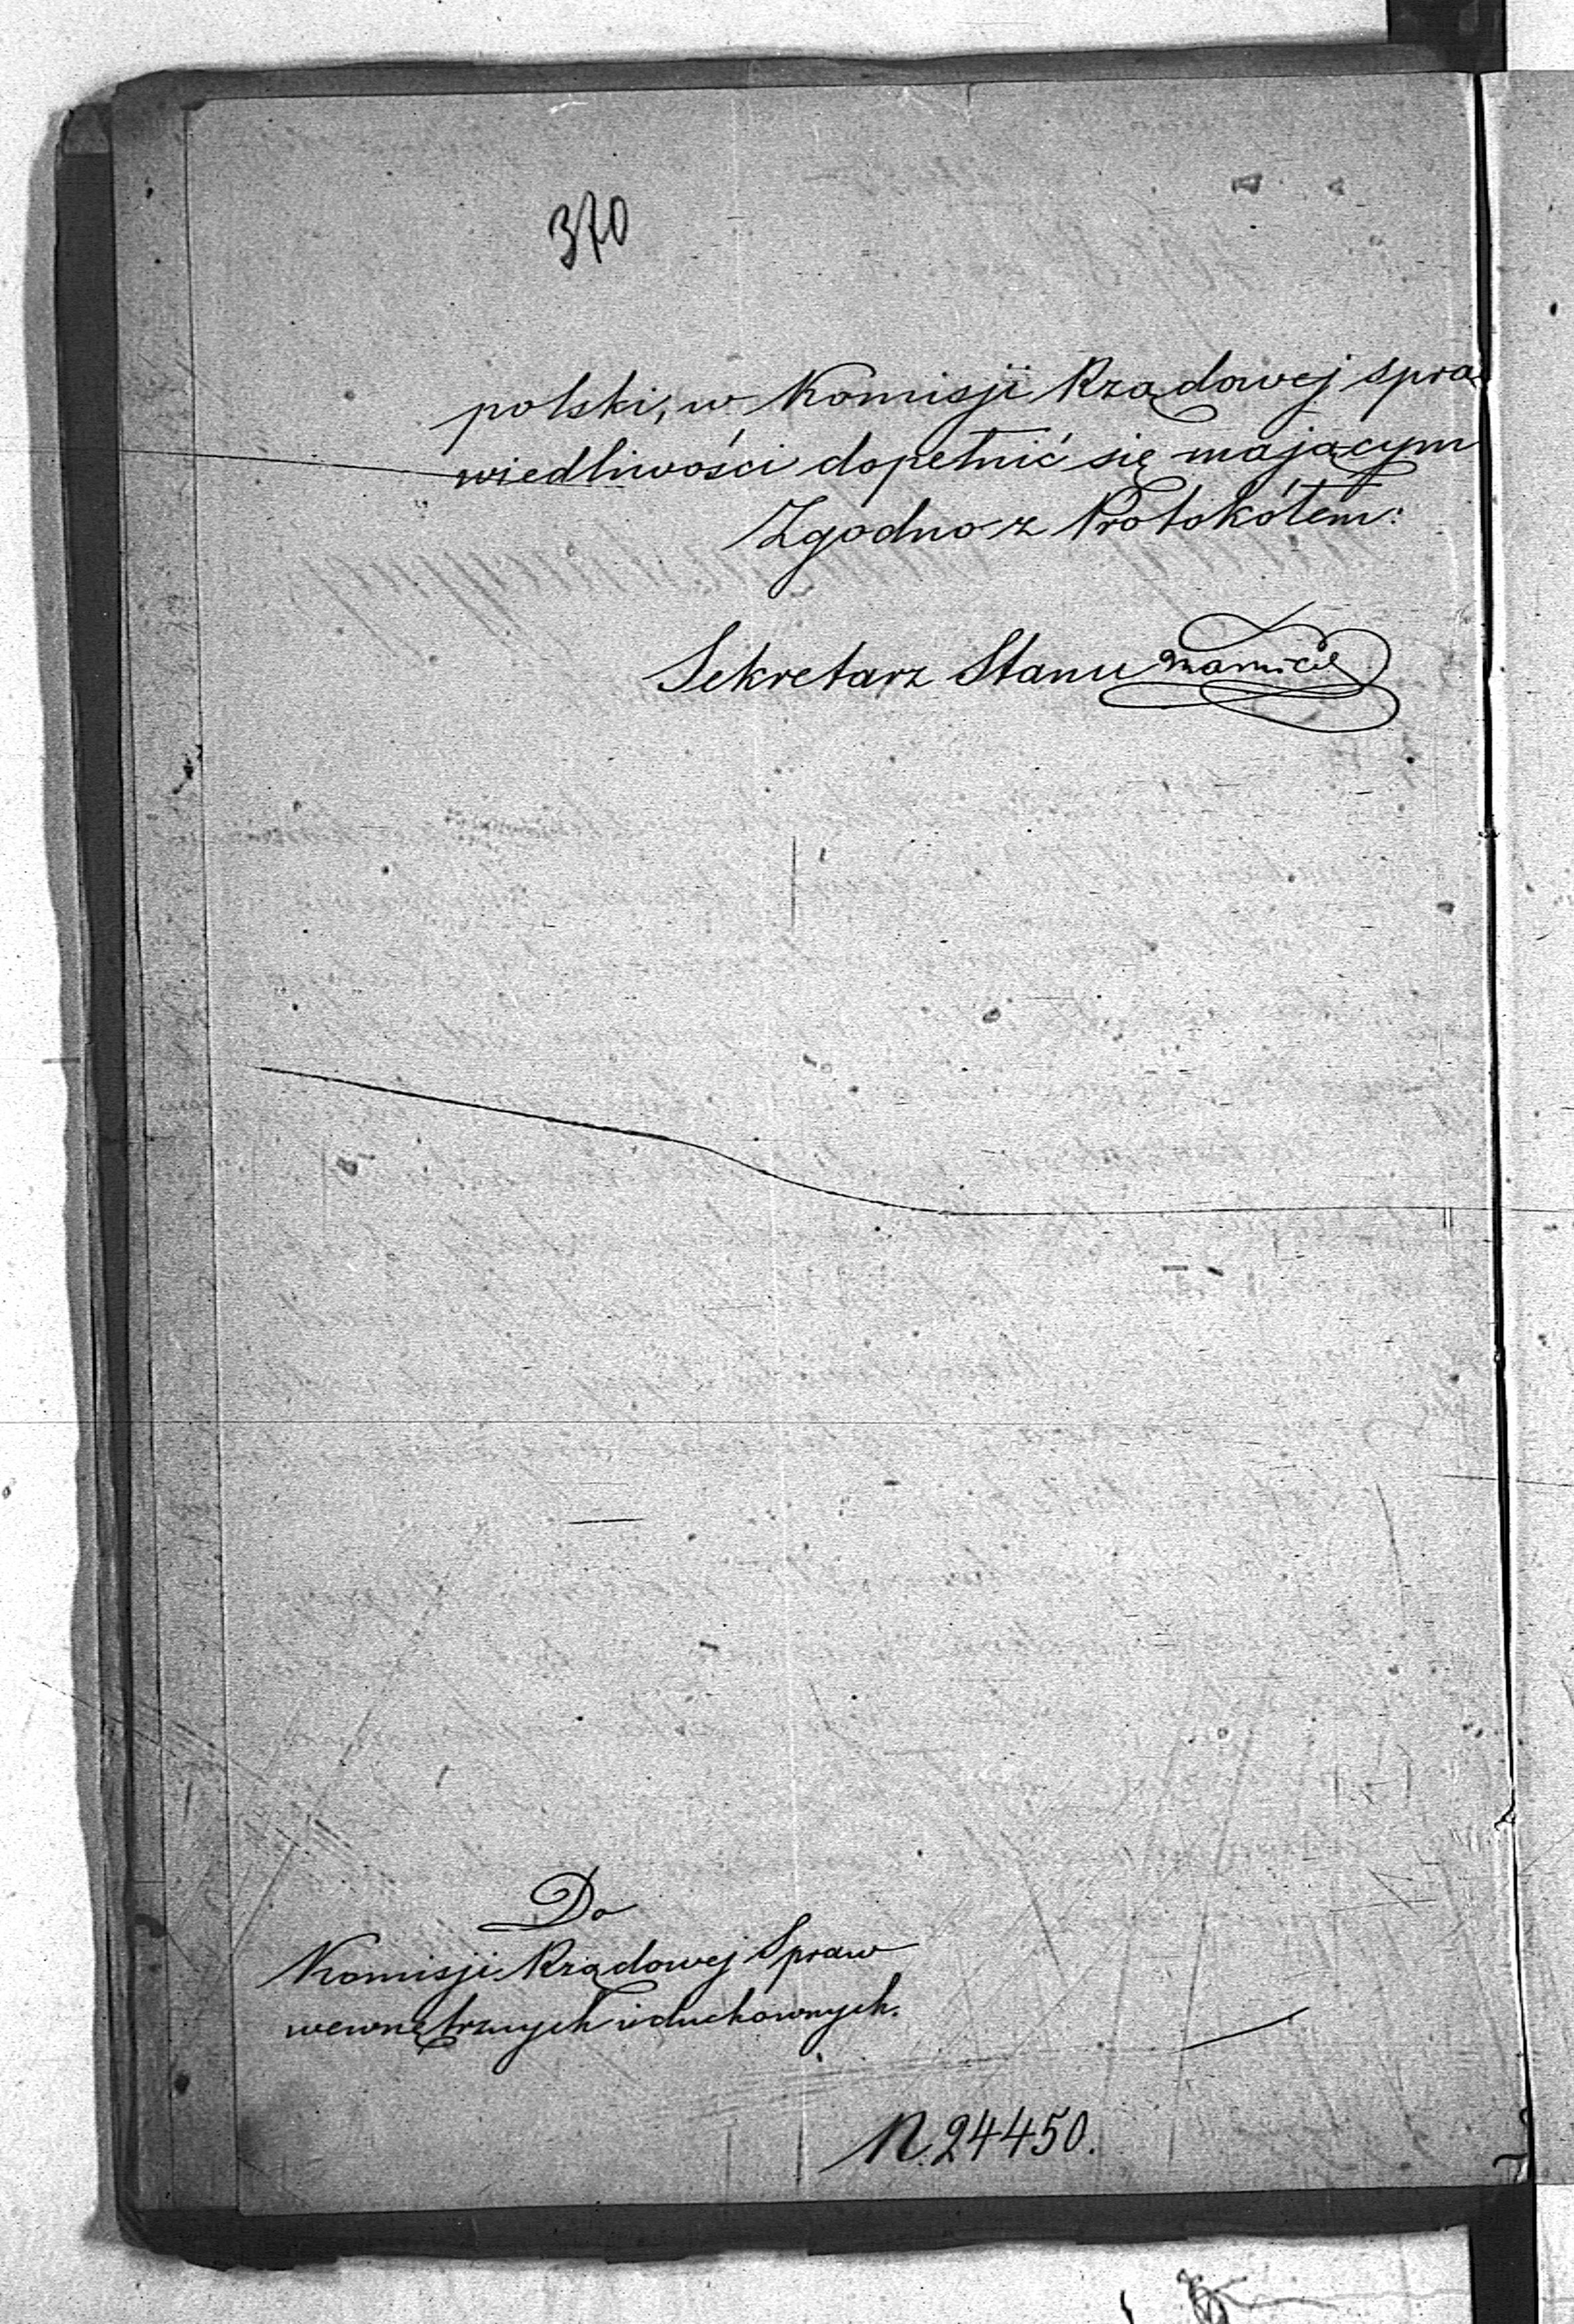 370
polski, w Komisji Rządowej spra
wiedliwości dopełnić się mającym
Zgodno z Protokółem:
Sekretarz Stanu
Do
Komisji Rządowej Spraw
wewnętrznych i duchownych.
N. 24450.